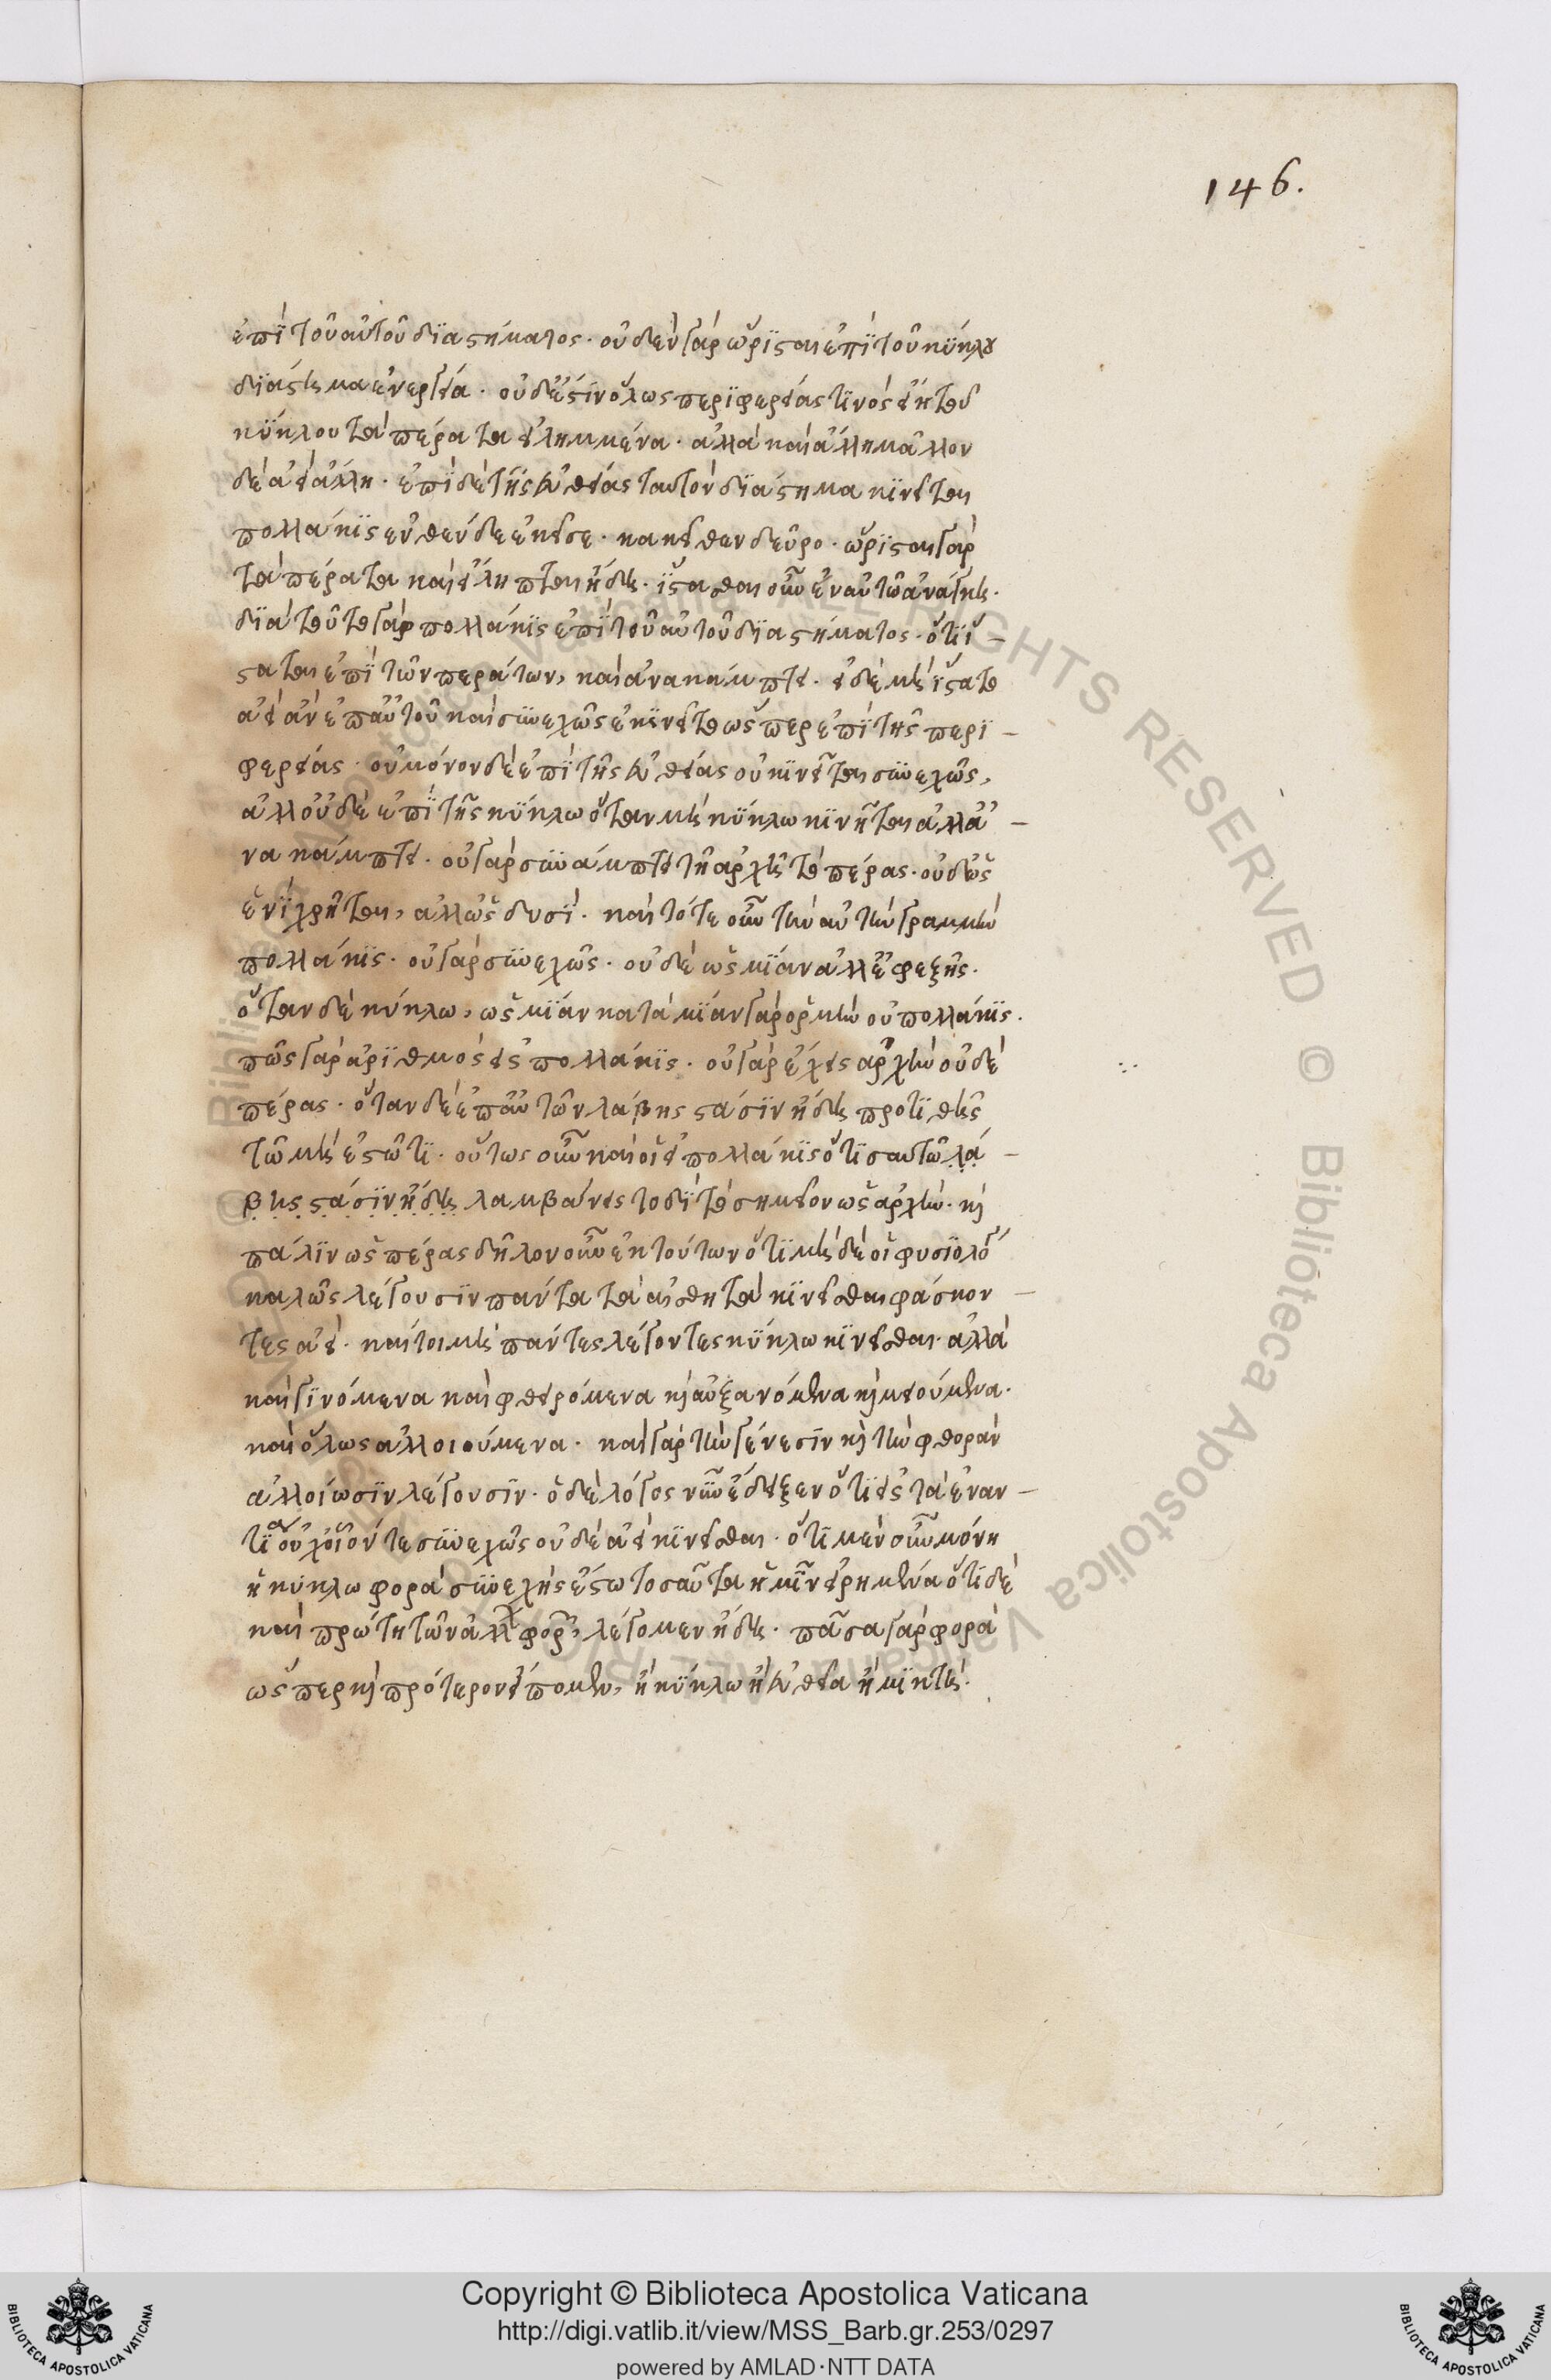 146.
ἐπὶ τοῦ αὐτοῦ διαστήματος. οὐδὲν γὰρ ὥρισται ἐπὶ τοῦ κύκλου
διάστημα ἐνεργεία. οὐδέ ἐστιν ὅλως περιφερείας τινὸς ἢ τοῦ
κύκλου τὰ πέρατα εἰλημμένα. ἀλλὰ καὶ ἄλλη μᾶλλον
δὲ ἀεὶ ἄλλη. ἐπὶ δὲ τῆς εὐθείας ταυτὸν διάστημα κινεῖται
πολλάκις ἐνθένδε ἐκεῖσε. κακεῖθεν δεῦρο. ὥρισται γὰρ
τὰ πέρατα καὶ εἴληπται ἤδη. ἵστασθαι οὖν ἐν αὐτῷ ἀνάγκη.
διὰ τοῦτο γὰρ πολλάκις ἐπὶ τοῦ αὐτοῦ διαστήματος. ὅτι ἵ-
σταται ἐπὶ τῶν περάτων, καὶ ἀνακάμπτει. εἰ δὲ μὴ ἵστατο
ἀεὶ ἂν ἐπ αὐτοῦ καὶ συνεχῶς ἐκινεῖτο ὥσπερ ἐπὶ τῆς περι-
φερείας. οὐ μόνον δὲ ἐπὶ τῆς εὐθείας οὐ κινεῖται συνεχῶς,
ἀλλ οὐδὲ ἐπὶ τῆς κύκλω ὅταν μὴ κύκλω κινῆται ἀλλ ἀ-
νακάμπτει. οὐ γὰρ συνάπτει τῇ ἀρχῇ τὸ πέρας. οὐδ ὡς
ἑνὶ χρῆται, ἀλλ ὡς δυσί. καὶ τότε οὖν τὴν αὐτὴν γραμμὴν
πολλάκις. οὐ γὰρ συνεχῶς. οὐδὲ ὡς μίαν ἀλλ ἐφεξῆς.
ὅταν δὲ κύκλω, ὡς μίαν κατὰ μίαν γὰρ ὁρμὴν οὐ πολλάκις.
πῶς γὰρ ἀριθμὸς εἰς πολλάκις. οὐ γὰρ ἔχεις ἀρχὴν οὐδὲ
πέρας. ὅταν δὲ ἐπ αὐτῶν λάβης στάσιν ἤδη προστιθῆς
τῷ μὴ ἑστῶτι. οὕτως οὖν καὶ οἷς εἰ πολλάκις ὅτι σαυτῷ λά-
βης στάσιν ἤδη λαμβάνεις τοδὶ τὸ σημεῖον ὡς ἀρχήν. καὶ
πάλιν ὡς πέρας δῆλον οὖν ἐκ τούτων ὅτι μὴ δὲ οἱ φυσιολόγοι
καλῶς λέγουσιν πάντα τὰ αἰσθητὰ κινεῖσθαι φάσκον-
τες ἀεί. καίτοι μὴ πάντες λέγοντες κύκλω κινεῖσθαι. ἀλλὰ
καὶ γινόμενα καὶ φθειρόμενα καὶ αὐξανόμενα καὶ μειούμενα.
καὶ ὅλως ἀλλοιούμενα. καὶ γὰρ τὴν γένεσιν καὶ τὴν φθορὰν
ἀλλοίωσιν λέγουσιν. ὁ δὲ λόγος νῦν ἔδειξεν ὅτι εἰς τὰ ἐναν-
τία οὐχ οἷόν τε συνεχῶς οὐδὲ ἀεὶ κινεῖσθαι. ὅτι μὲν οὖν μόνη
ἡ κύκλω φορὰ συνεχὴς ἔστω τοσαῦτα ἡμῖν εἰρημένα ὅτι δὲ
καὶ πρώτη τῶν ἄλλων φορῶν, λέγομεν ἤδη. πᾶσα γὰρ φορὰ
ὥσπερ καὶ πρότερον εἴπομεν, ἢ κύκλω ἢ εὐθεῖα ἢ μικτή.
© Biblioteca Apostolica Vaticana ALL RIGHTS RESERVED
Copyright © Biblioteca Apostolica Vaticana
http://digi.vatlib.it/view/MSS_Barb.gr.253/0297
powered by AMLAD·NTT DATA
BIBLIOTECA APOSTOLICA VATICANA
BIBLIOTECA APOSTOLICA VATICANA